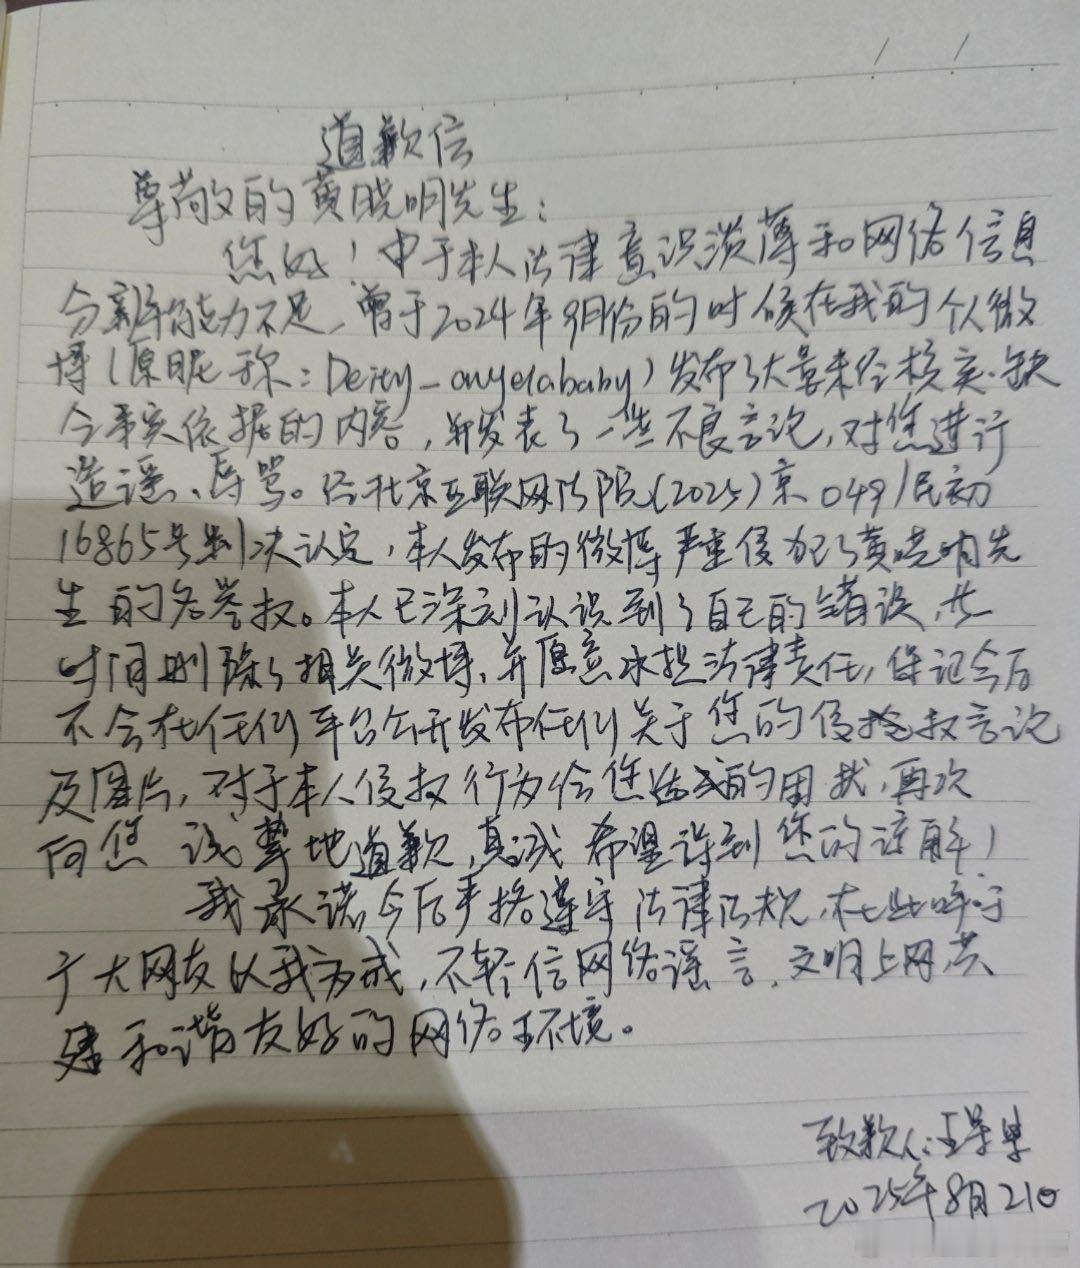 道歉信
尊敬的黄晓明先生：
您好！由于本人法律意识淡薄和网络信息
分辨能力不足，曾于2024年9月份的时候在我的个微
博（原昵称：Deity-angelababy）发布了大量未经核实、缺
乏事实依据的内容，并发表了一些不良言论，对您进行
造谣、辱骂。经北京互联网法院（2025）京0491民初
16865号判决认定，本人发布的微博严重侵犯了黄晓明先
生的名誉权。本人已深刻认识到了自己的错误，
时间删除了相关微博，并愿意承担法律责任，保证今后
不会在任何平台公开发布任何关于您的侵权言论
及图片，对于本人侵权行为给您造成的困扰，再次
向您诚挚地道歉，真诚希望得到您的谅解！
我承诺今后严格遵守法律法规，在此呼吁
广大网友以我为戒，不轻信网络谣言，文明上网，共
建和谐友好的网络环境。
致歉人：王
2025年8月21日